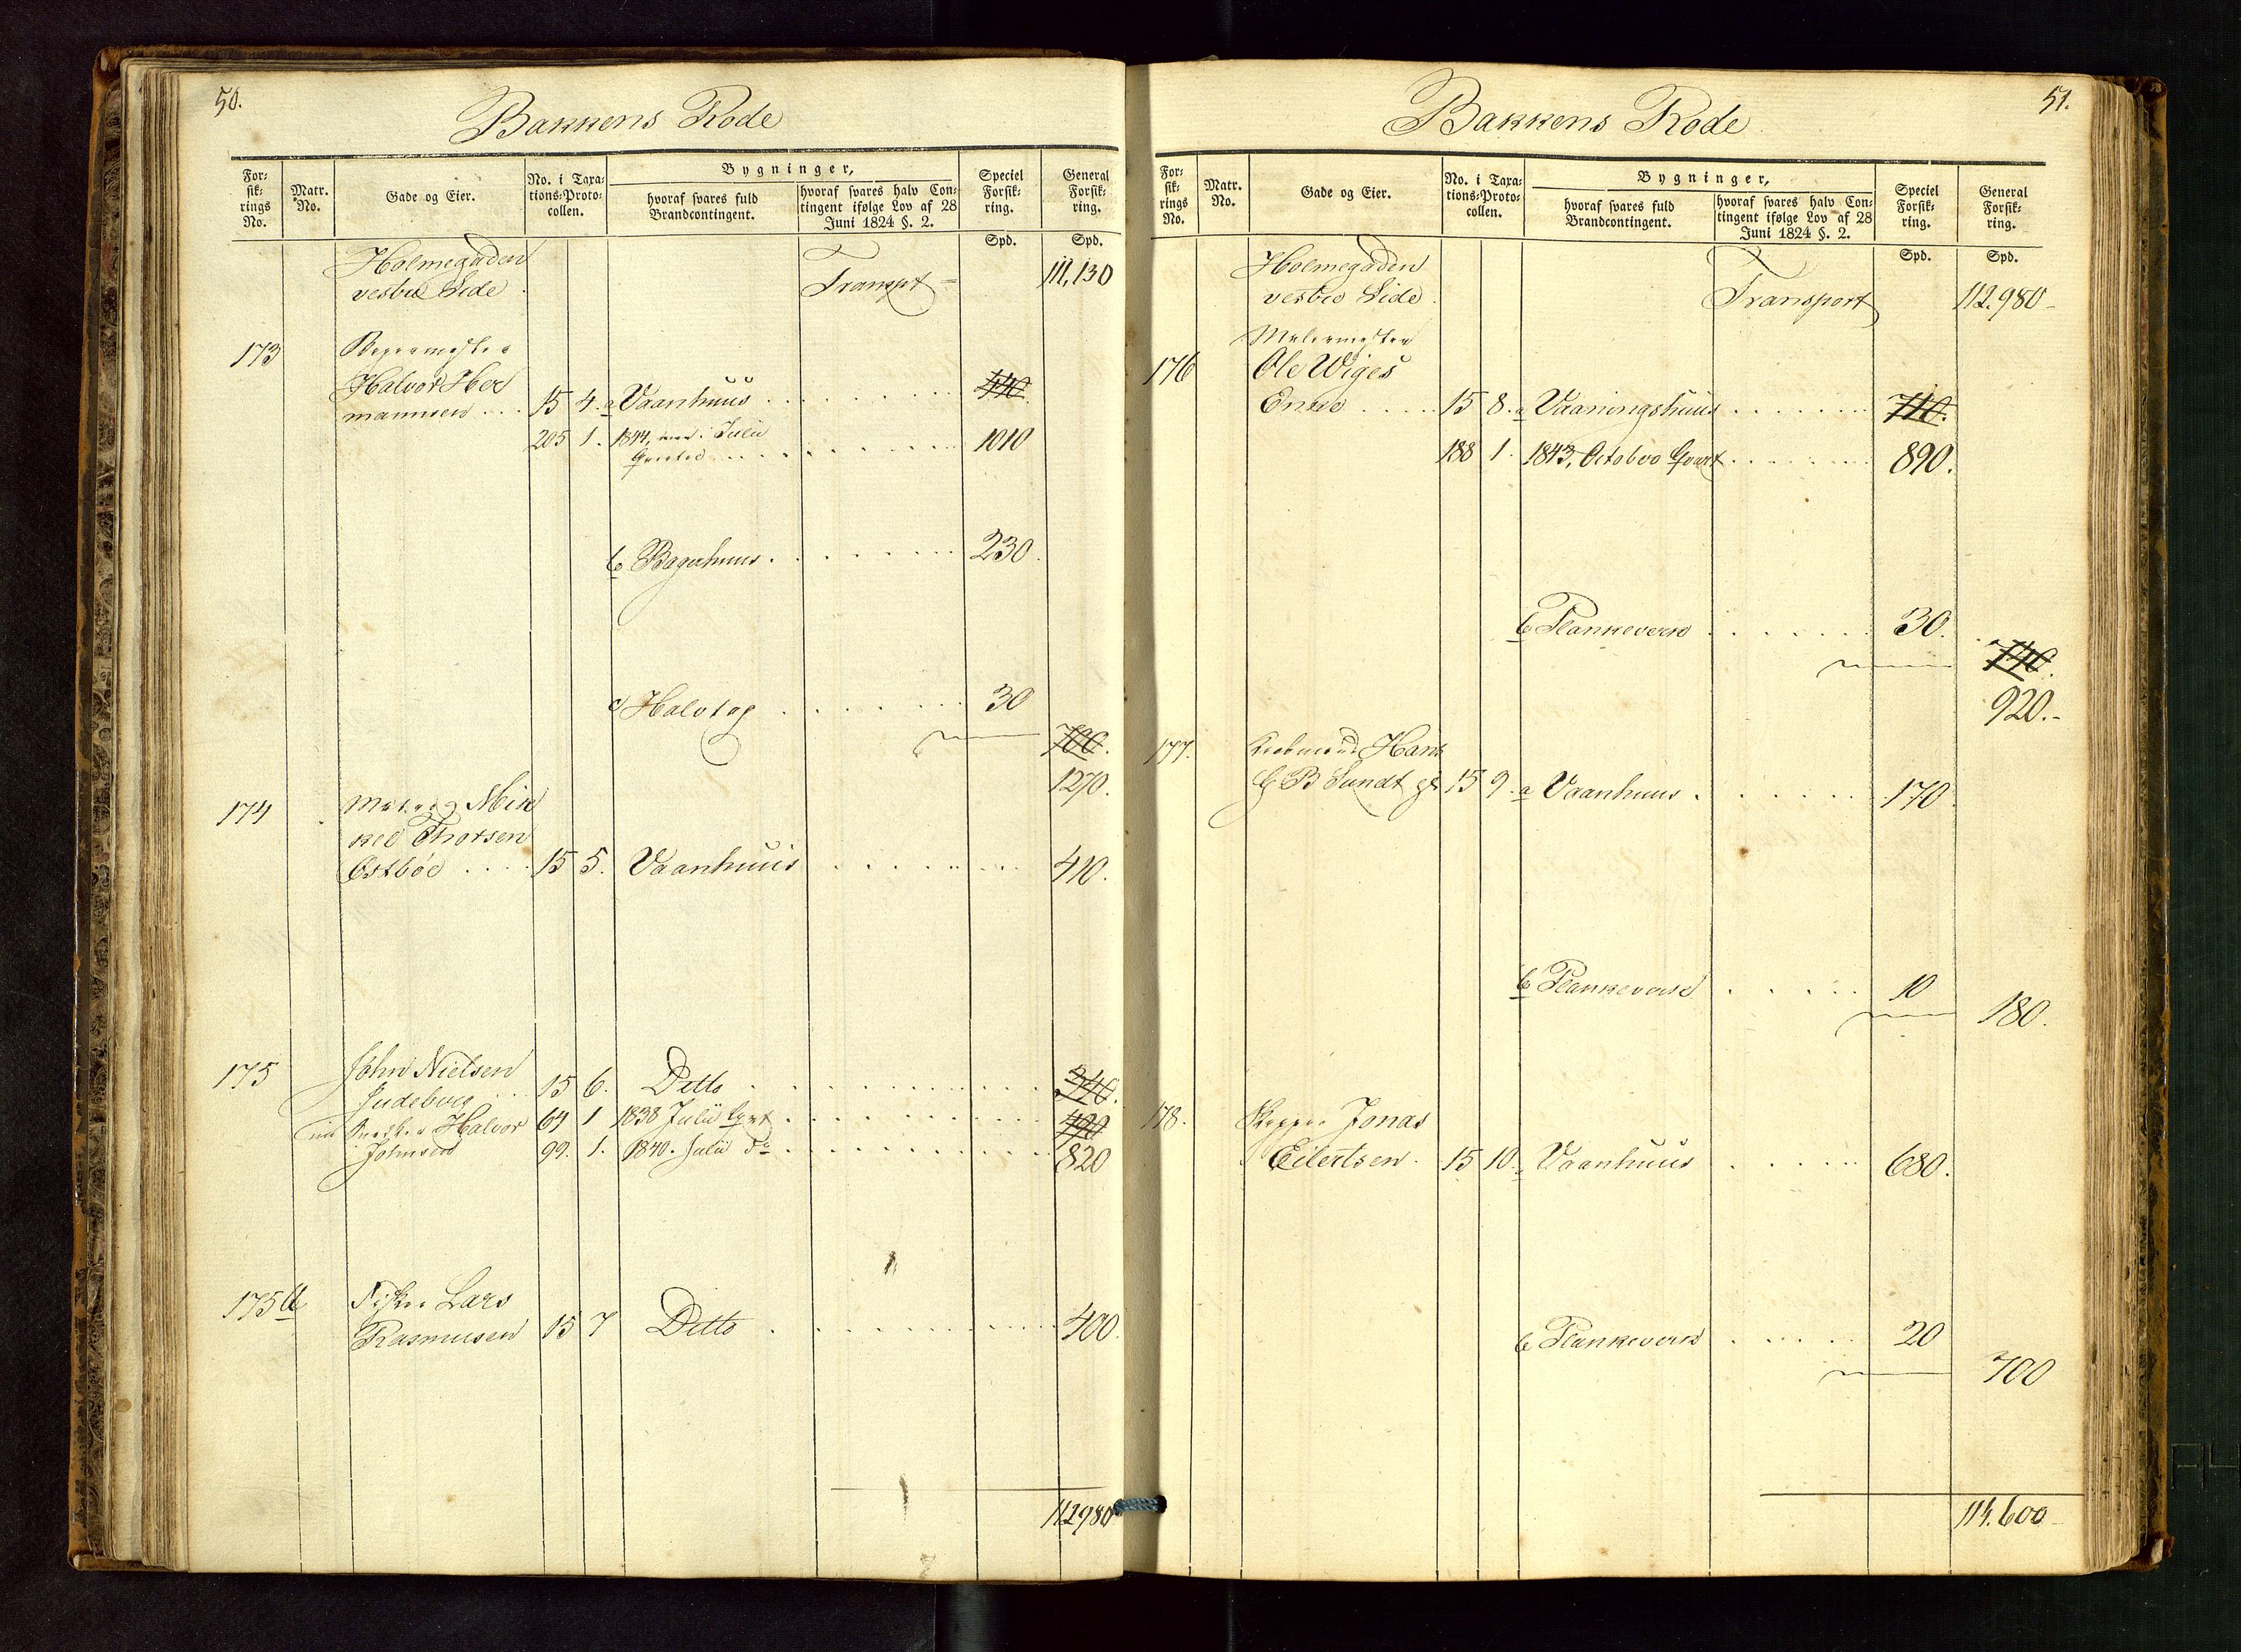 50.
Bakkens Rode
For-
sik-
rings
No.
Matr.
No.
Gade og Eier.
No. i Taxa-
tions-Proto-
collen.
Bygninger,
hvoraf svares fuld
Brandcontingent.
hvoraf svares halv Con-
tingent ifølge Lov af 28
Juni 1824 §. 2.
Speciel
Forsik-
ring.
Spd.
General
Forsik-
ring.
Spd.
Holmegaden
vestre Side
Transpt 111,130
173 Bagermester
Halvor Her
mannsen 15 4. a Vaanhuus 440
205 1. 1844, Juli
1010
b Bagerhuus 230
c Halvtag 30
700.
1270.
174 Mik
kel Thorsen
Østbøe 15 5. Vaanhuus 410.
175 John Nielsen
Judeberg 15 6. Ditto 340.
Halvor 64 1 1838 Juli Qvrt 490
Johnsen 99. 1. 1840. Juli do 820
175b Fisker Lars
Rasmusen 15 7 Ditto 400.
112980
51.
Bakkens Rode
For-
sik-
rings
No.
Matr.
No.
Gade og Eier.
No. i Taxa-
tions-Proto-
collen.
Bygninger,
hvoraf svares fuld
Brandcontingent.
hvoraf svares halv Con-
tingent ifølge Lov af 28
Juni 1824 §. 2.
Speciel
Forsik-
ring.
Spd.
General
Forsik-
ring.
Spd.
Holmegaden
vestre Side
Transport 112.980
Malermester
176 Ole Wiges
Enke 15 8. a Vaaningshuus 710.
188 1. 1843, Octobro Qvart 890.
b Plankeverk 30.
740.
920.-
177. Kiøbmand Hans
G B Sundt 15 9. a Vaanhuus 170
b Plankeverk 10
180.
178. Skipper Jonas
Eilertsen 15 10. a Vaanhuus 680.
b Plankeverk 20
700
114.600